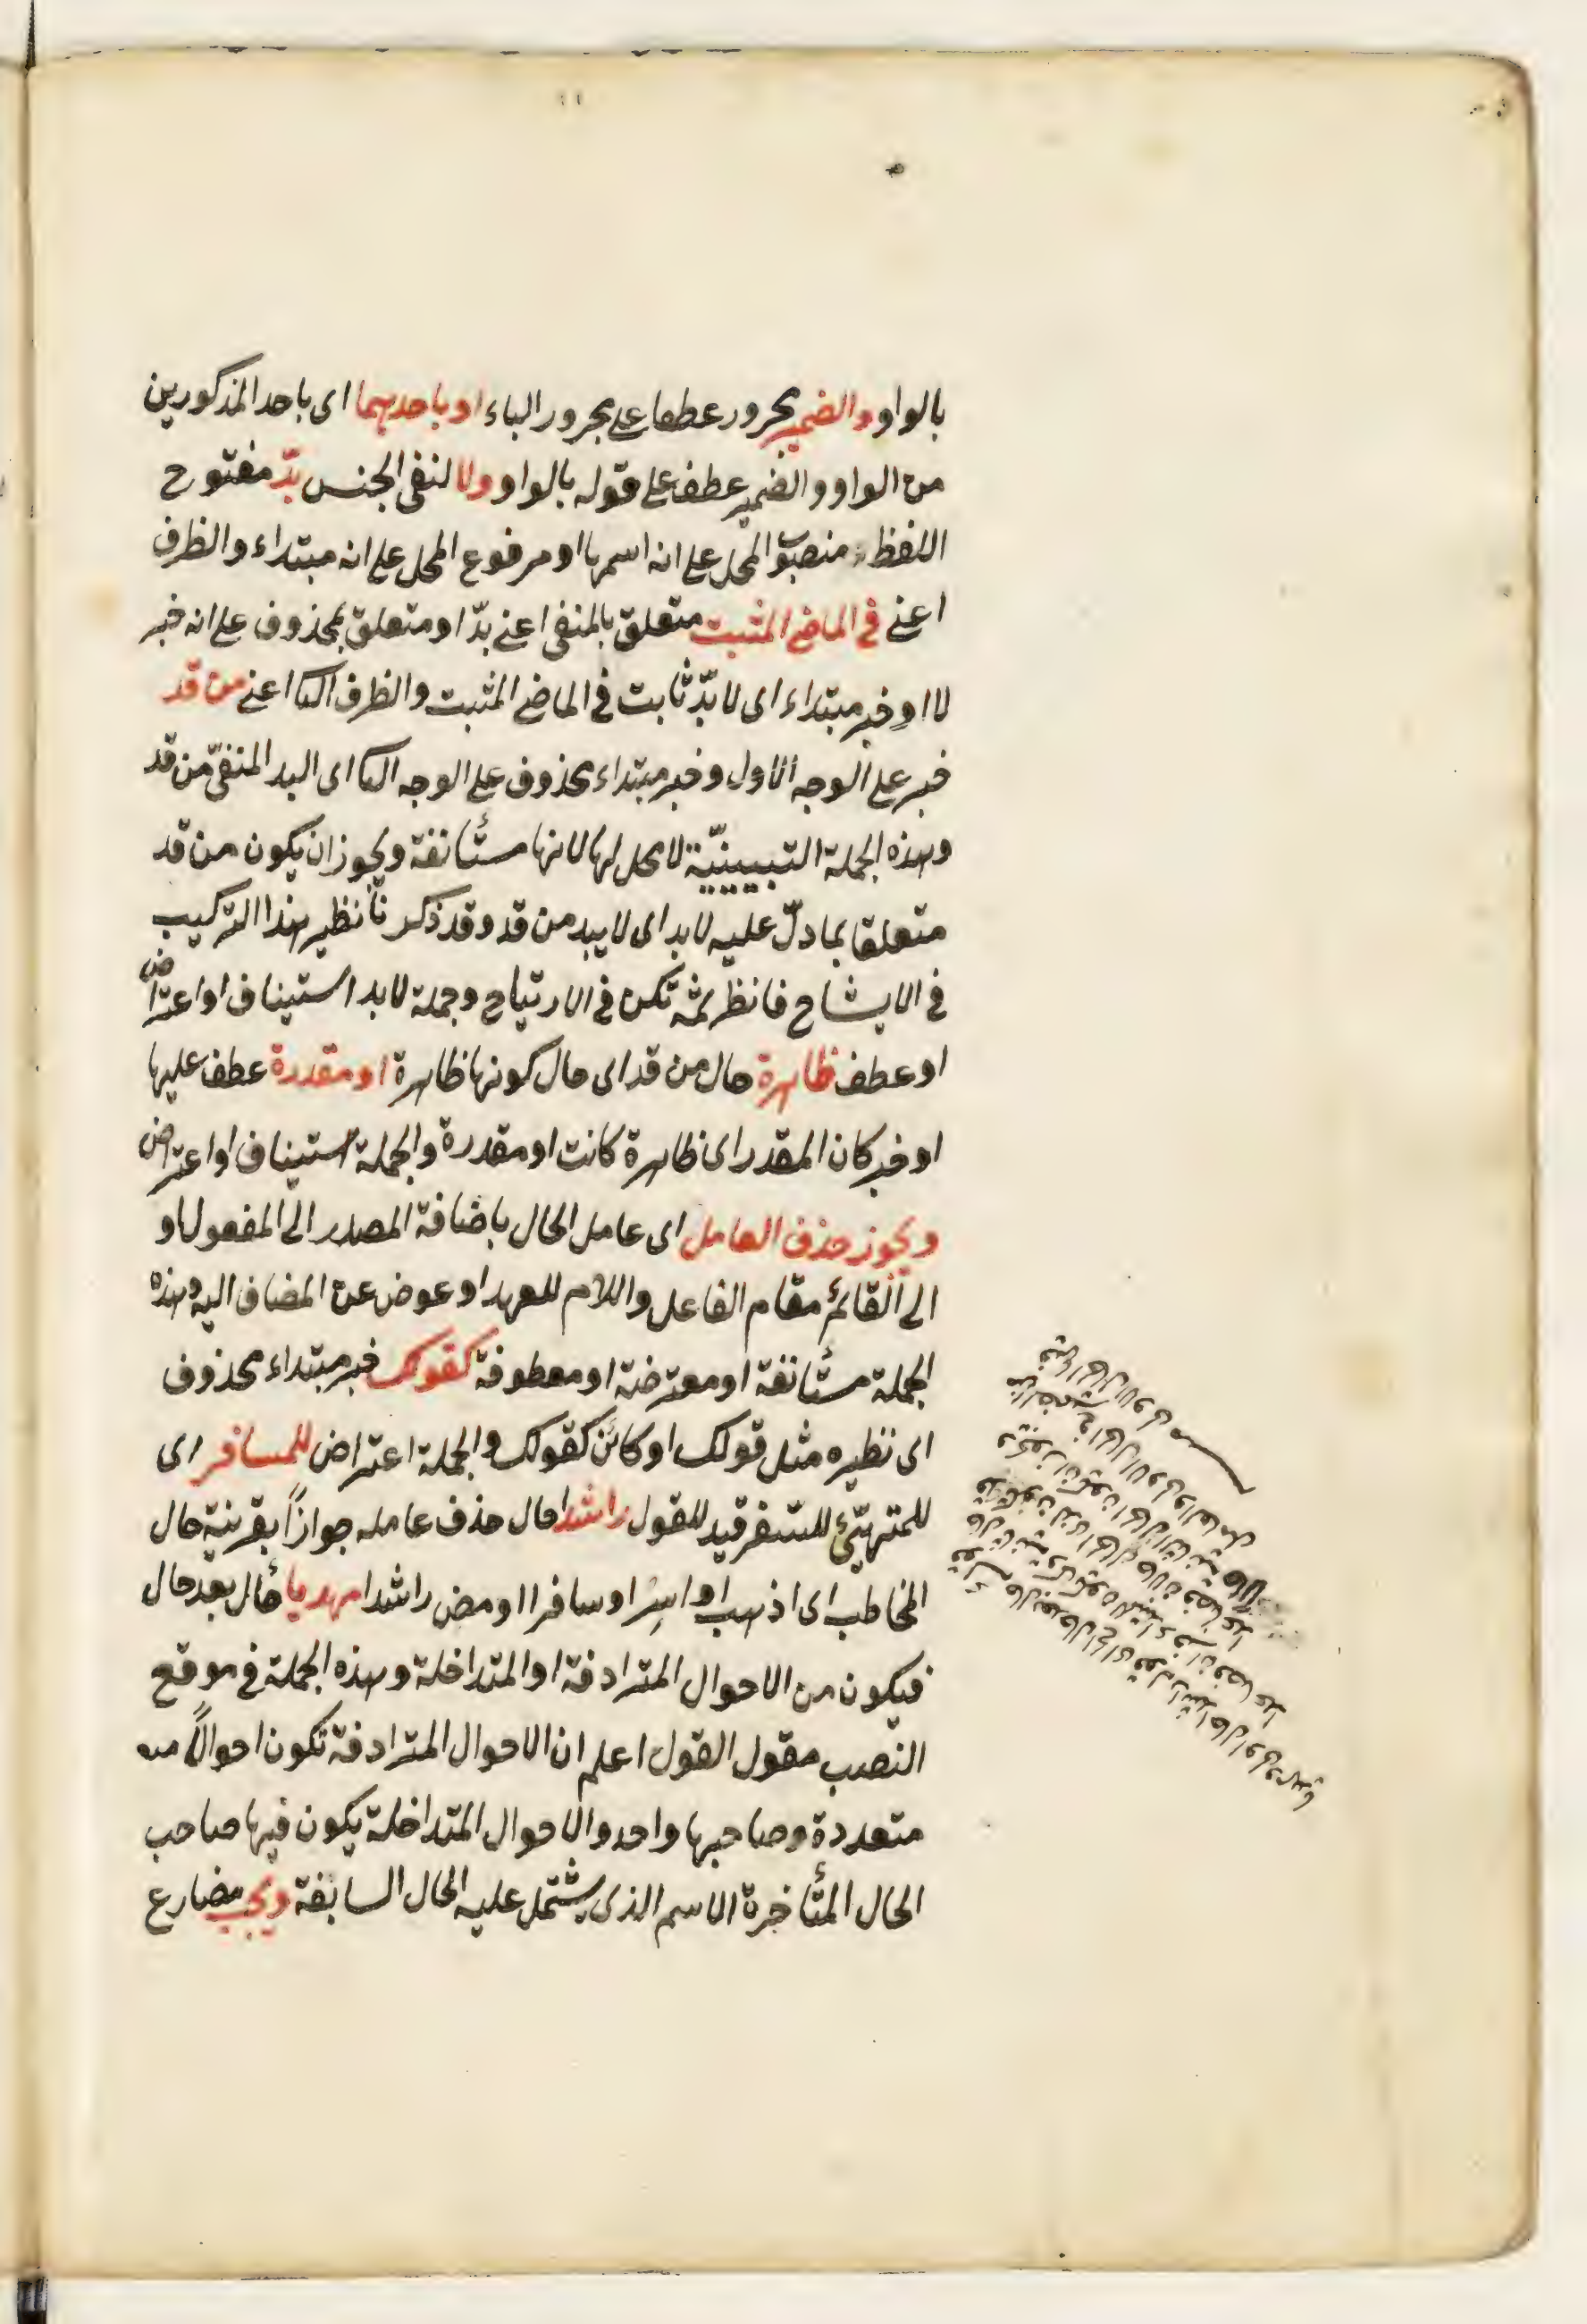 بالواو والضمير مجرور عطفا على مجرور الباء او باحديهما اى باحد المذكورين
من الواو والضمير عطف على قوله بالواو ولا لنفى الجنس بدّ مفتوح
اللفظ منصوب المحل على انه اسمها او مرفوع المحل على انه مبتداء والظرف
اعنى فى الماضى المثبت متعلق بالمنفى اعنى بدّ او متعلق بمحذوف على انه خبر
لا او خبر مبتداء اى لا بدّ ثابت فى الماضى المثبت والظرف الثا اعنى من قد
خبر على الوجه الاول وخبر مبتداء محذوف على الوجه الثا اى البد المنفىّ من قد
وهذه الجملة التبيينيّة لا محل لها لانها مستأنفة ويجوز ان يكون من قد
متعلقا بما دلّ عليه لا بد اى لا يبد من قد وقد ذكرنا نظير هذا التركيب
فى الايشاح فانظر ثمّه تكن فى الارتياح وجملة لا بد استيناف او اعتراض
او عطف ظاهرة حال من قد اى حال كونها ظاهرة او مقدرة عطف عليها
او خبر كان المقدر اى ظاهرة كانت او مقدرة والجملة استيناف او اعتراض
ويجوز حذف العامل اى عامل الحال باضافة المصدر الى المفعول او
الى القائم مقام الفاعل واللام للعهد او عوض عن المضاف اليه وهذه
الجملة مستأنفة او معترضة او معطوفة كقولك خبر مبتداء محذوف
اى نظيره مثل قولك او كائن كقولك والجملة اعتراض للمسافر اى
للمتهيّئ للسفر قيد للقول راشدا حال حذف عامله جوازاً بقرينة حال
المخاطب اى اذهب او اسِر او سافر او مض راشدا مهديا حال بعد حال
فيكون من الاحوال المترادفة او المتداخلة وهذه الجملة فى موقع
النصب مقول القول اعلم ان الاحوال المترادفة تكون احوالاً
متعددة وصاحبها واحد والاحوال المتداخلة يكون فيها صاحب
الحال المتأخرة الاسم الذى يشتمل عليه الحال السابقة ويجب مضارع